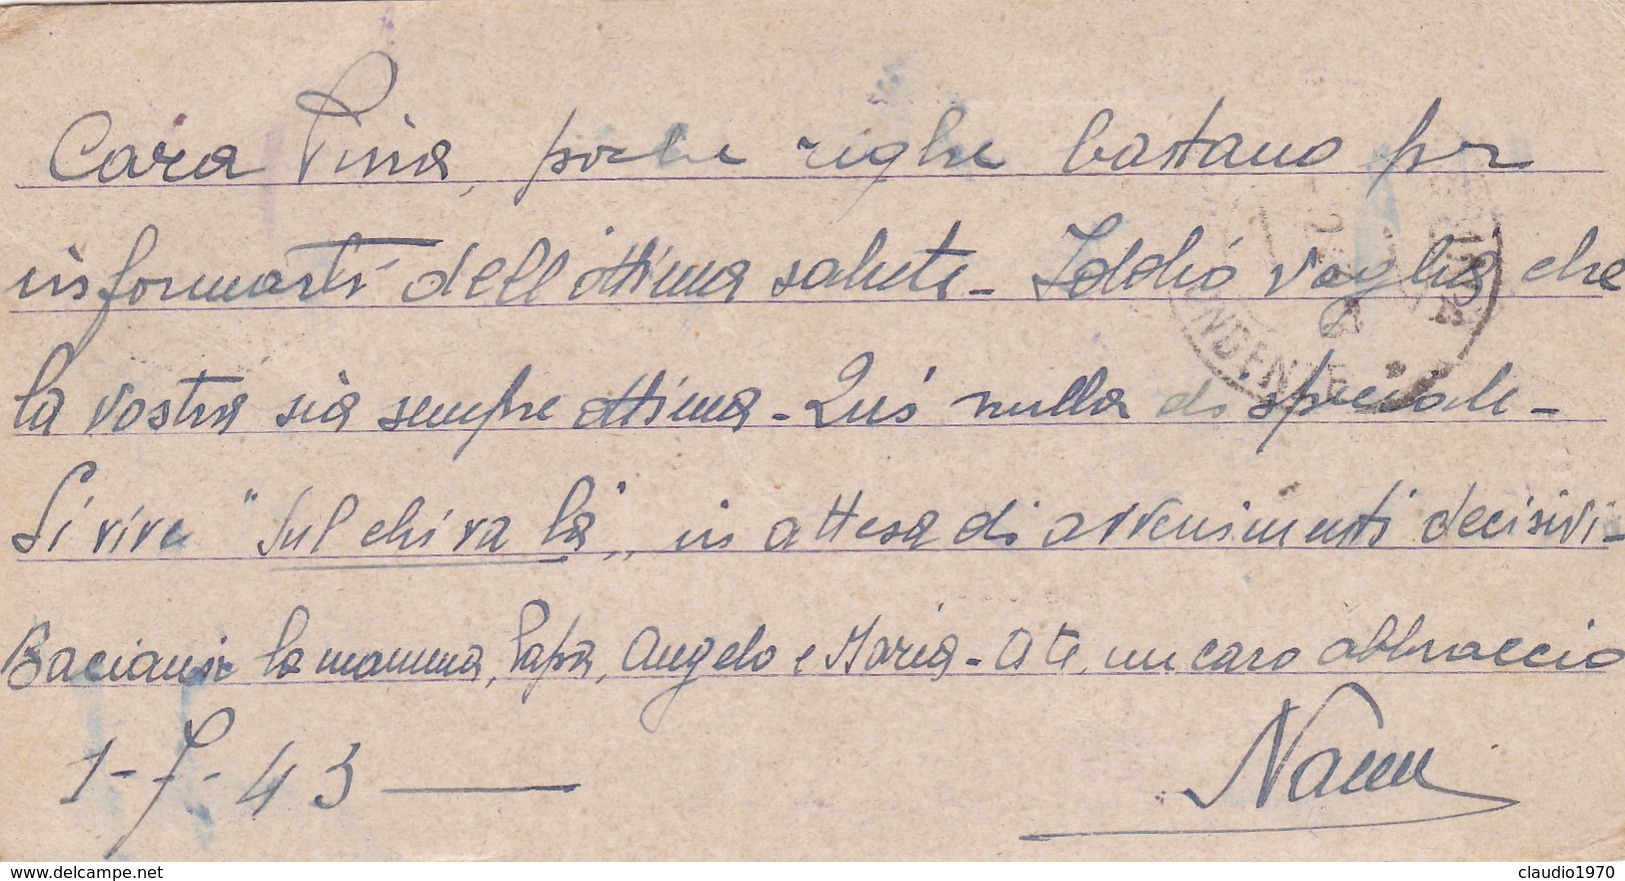 Cara Pina, poche righe bastano per
informarti dell'ottima salute - Iddio voglia che
la vostra sia sempre ottima - Qui nulla di speciale -
Si vive "sul chi va là„ in attesa di avvenimenti decisivi -
Baciami la mamma, Papà, Angelo e Maria - A te, un caro abbraccio
1-7-43
Nanni
NDENTE
delcampe.net
claudio1970